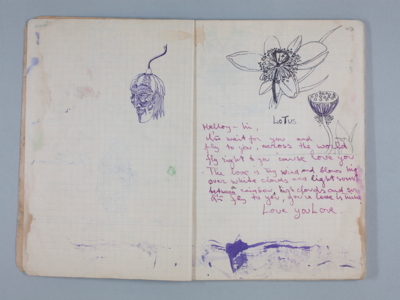 LOTUS
Halloy - hi,
I'm wait for you and
fly to you, across the world
fly right to you 'cause love you
The love is big wind and blows big
over white clouds and light
between rainbow, high clouds and
fly to you, you're love is
Love you Love.